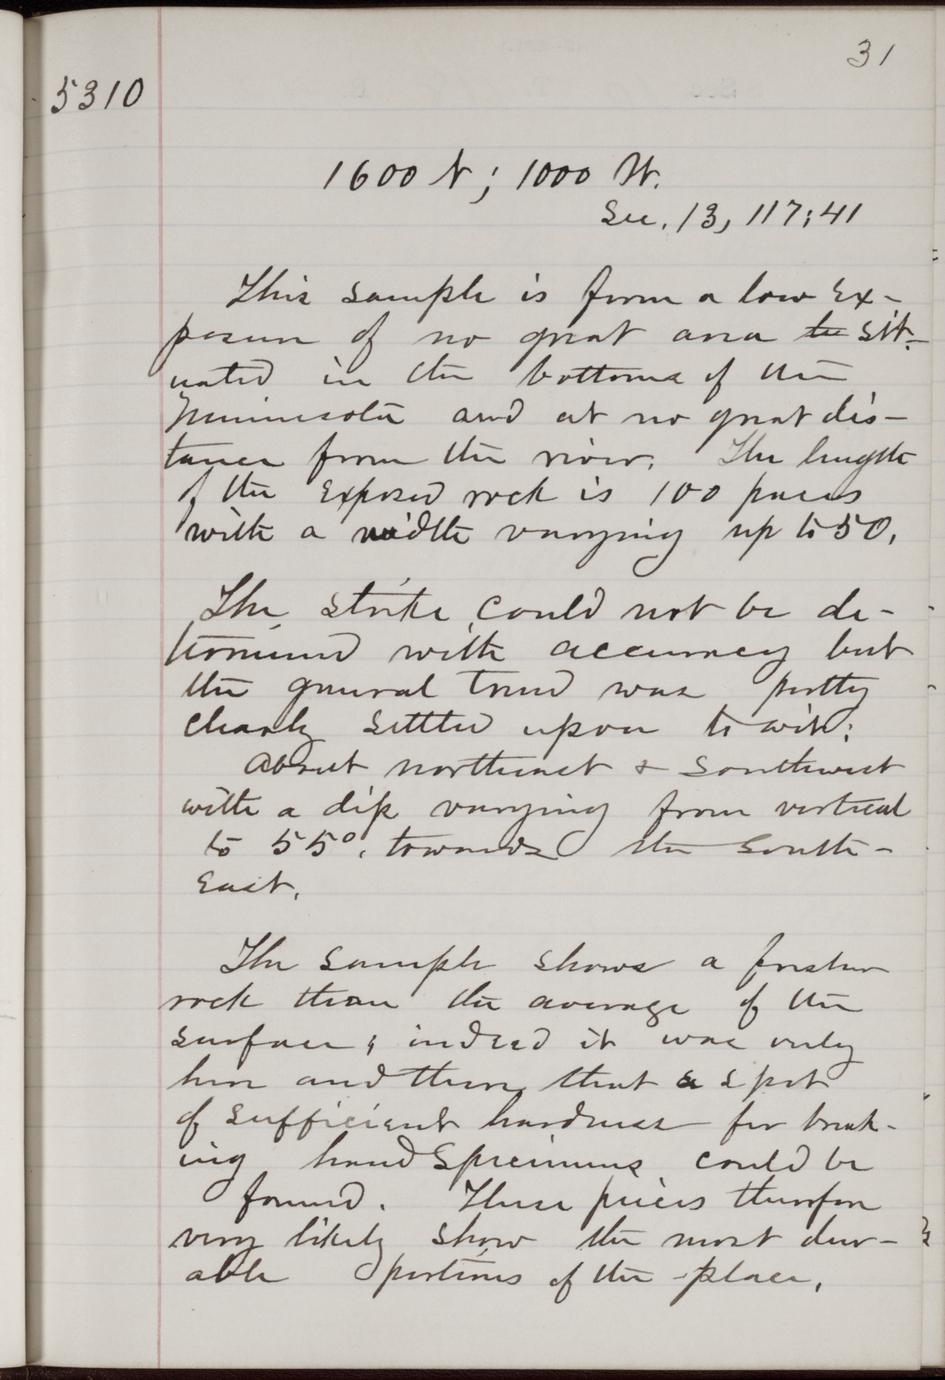 31
5310
1600 N; 1000 W.
Sec. 13, 117;41
This sample is from a low ex-
posure of no great area to sit-
uated in the bottoms of the
Minnesota and at no great dis-
tance from the river. The length
of the exposed rock is 100 paces
with a width varying up to 50.
The strike could not be de-
termined with accuracy but
the general trend was pretty
clearly settled upon to wit:
About northeast & southwest
with a dip varying from vertical
to 55°. towards the south-
east.
The sample shows a fresher
rock than the average of the
surface; indeed it was only
here and there that a spot
of sufficient hardness for break-
ing hand specimens could be
found. These pieces therefore
very likely show the most dur-
able portions of the place.